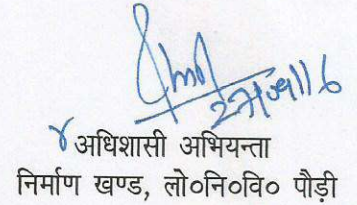 27/09/16
अधिशासी अभियन्ता
निर्माण खण्ड, लो०नि०वि० पौड़ी